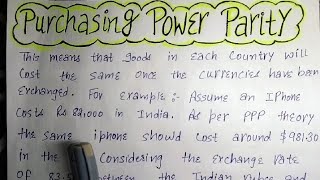 Purchasing Power Parity
This means that goods in each Country will
Cost the same once the currencies have been
Exchanged. For example :- Assume an IPhone
Costs Rs 82,000 in India. As per PPP theory
the same iphone should cost around $981.30
in the Considering the Exchange Rate
OF 83. between the Indian Rupee and